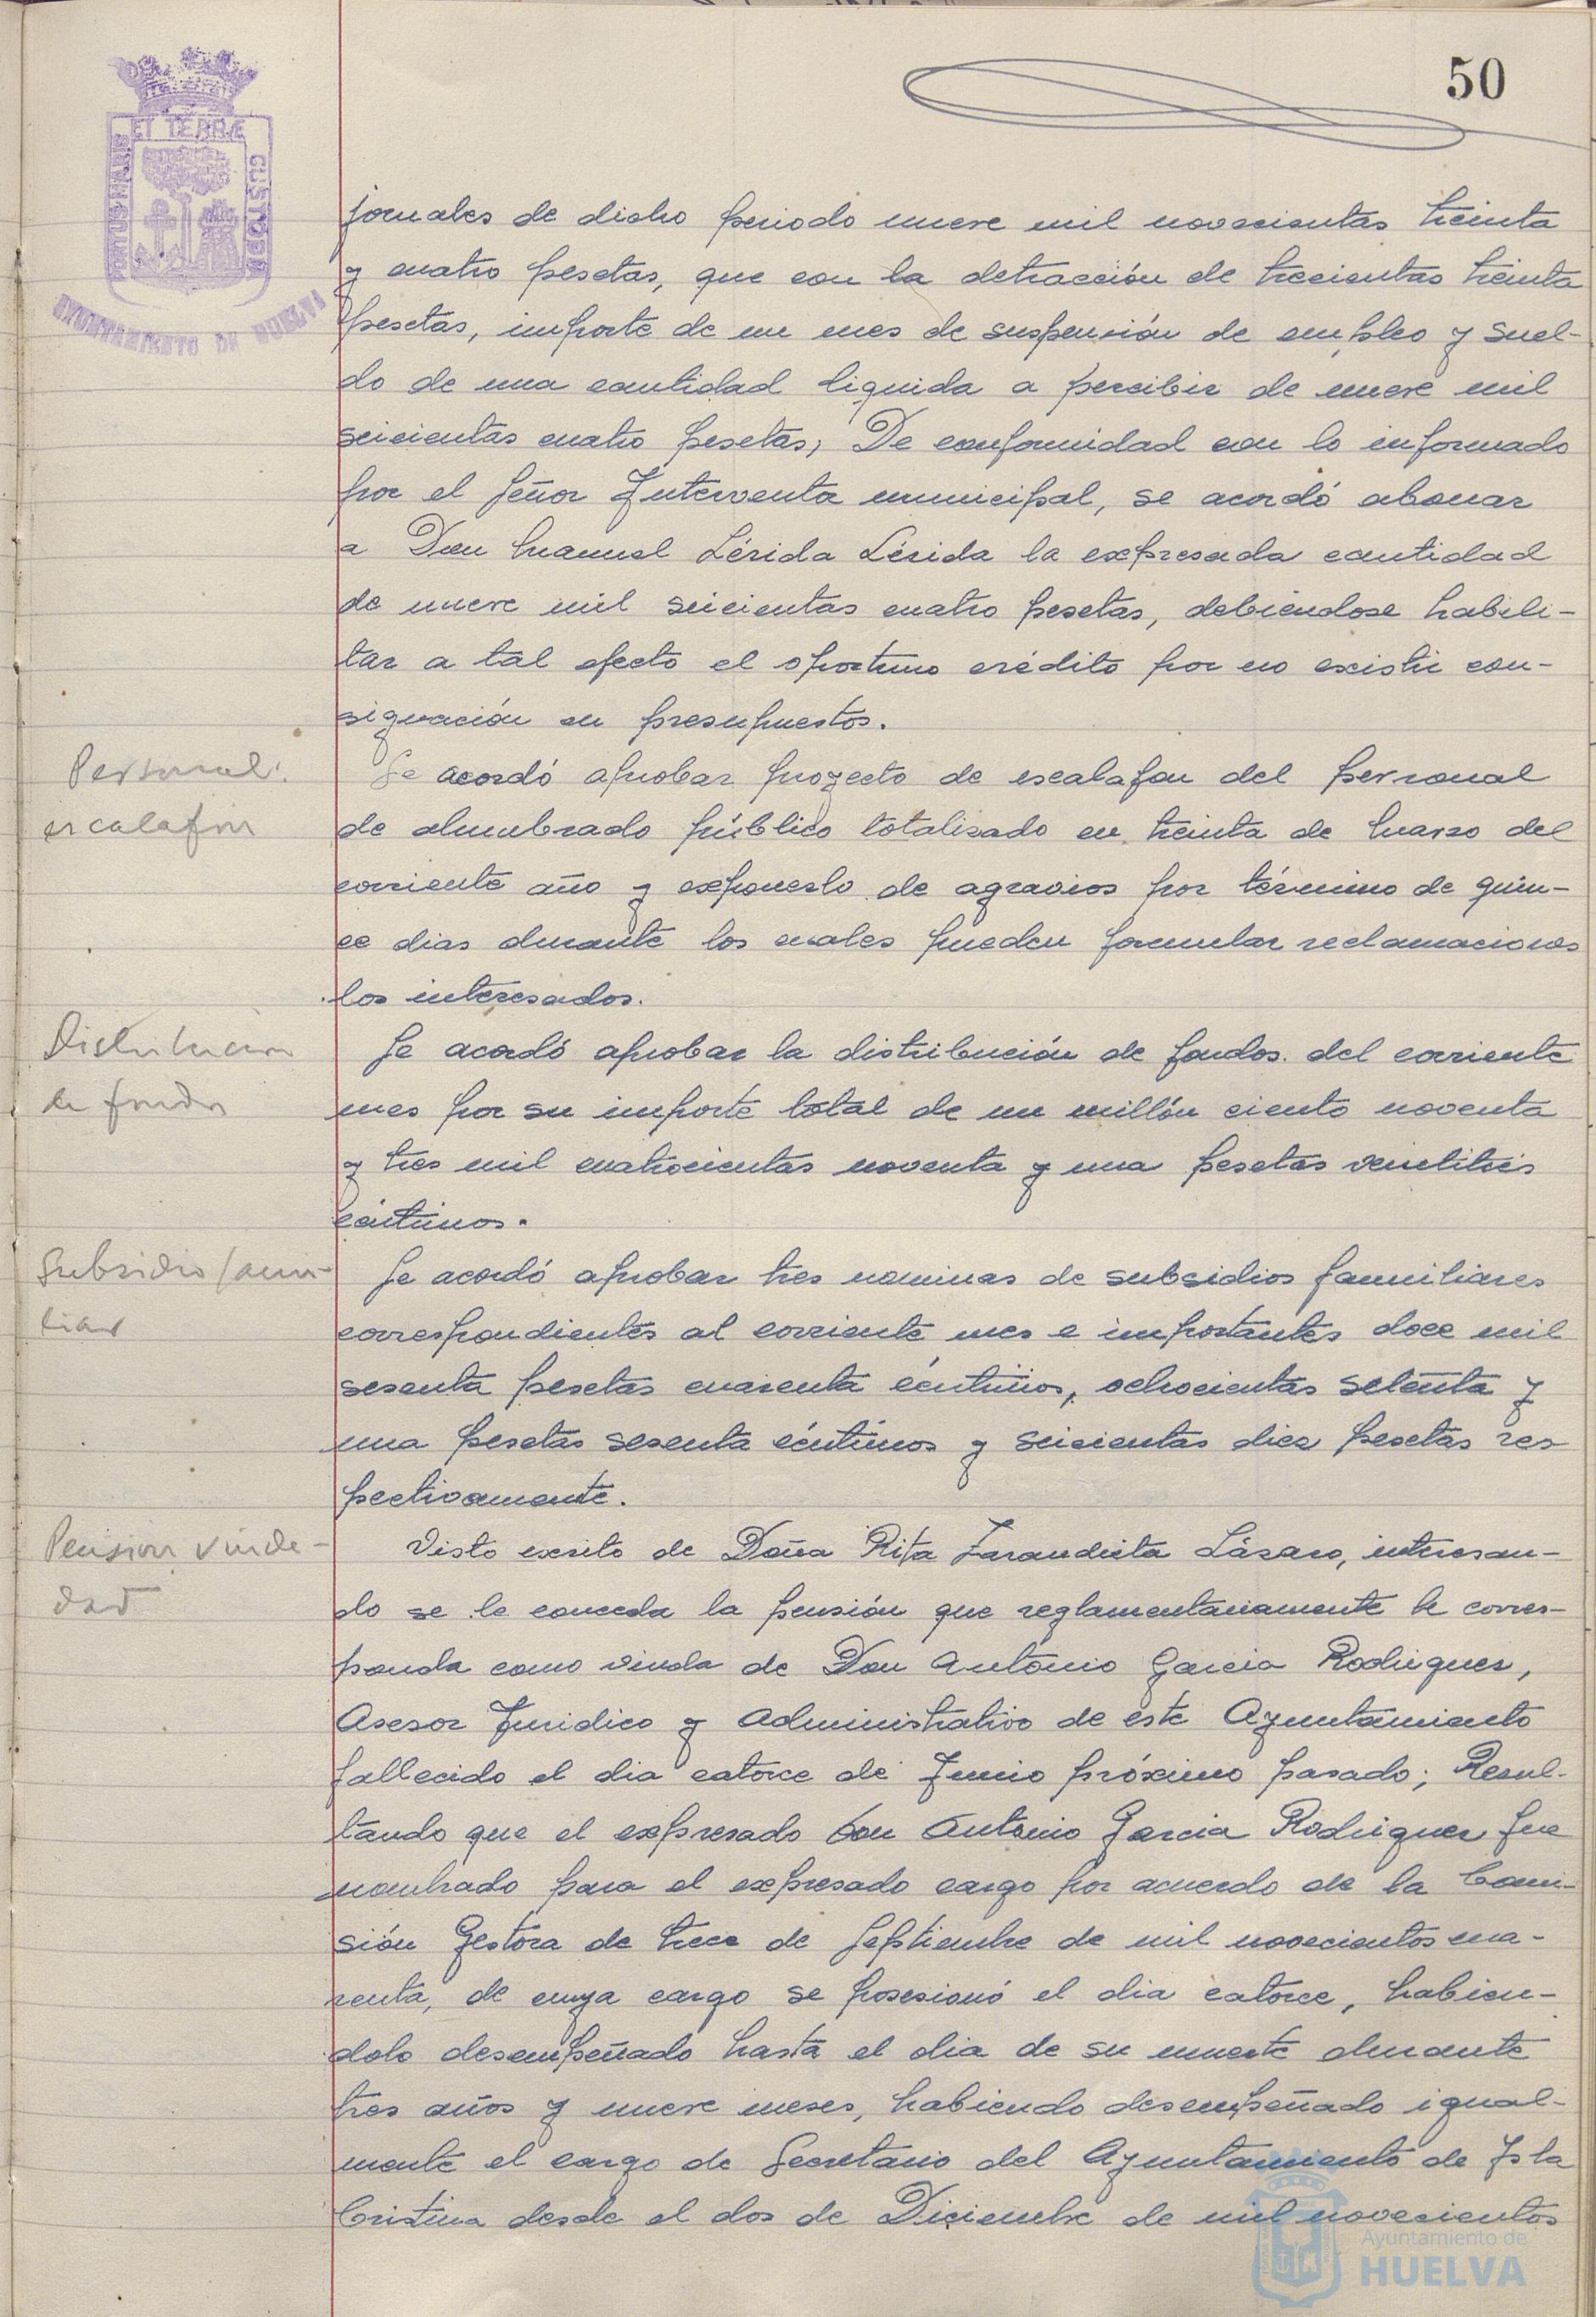 50
ET TERRÆ
PORTUS MARIS
CUSTODIA
AYUNTAMIENTO DE HUELVA
jornales de dicho periodo nueve mil novecientas treinta
y cuatro pesetas, que con la detracción de trecientas treinta
pesetas, importe de un mes de suspensión de empleo y suel-
do de una cantidad liquida a percibir de nueve mil
seicientas cuatro pesetas; De conformidad con lo informado
por el Señor Interventor municipal, se acordó abonar
a Don Manuel Lérida Lérida la expresada cantidad
de nueve mil seicientas cuatro pesetas, debiendose habili-
tar a tal efecto el oportuno crédito por no existir con-
signación en presupuestos.
Personal:
escalafon
Se acordó aprobar proyecto de escalafon del personal
de alumbrado público totalizado en treinta de Marzo del
corriente año y exponerlo de agravios por término de quin-
ce dias durante los cuales pueden formular reclamaciones
los interesados.
Distribucion
de fondos
Se acordó aprobar la distribución de fondos del corriente
mes por su importe total de un millón ciento noventa
y tres mil cuatrocientas noventa y una pesetas veintitrés
céntimos.
Subsidio fami-
liar
Se acordó aprobar tres nominas de subsidios familiares
correspondientes al corriente mes e importantes doce mil
sesenta pesetas cuarenta céntimos, ochocientas setenta y
una pesetas sesenta céntimos y seicientas diez pesetas res
pectivamente.
Pension viude-
dad
Visto escrito de Doña Rita Zarandieta Lázaro, interesan-
do se le conceda la pensión que reglamentariamente le corres-
ponda como viuda de Don Antonio Garcia Rodriguez,
Asesor Juridico y Administrativo de este Ayuntamiento
fallecido el dia catorce de Junio próximo pasado; Resul-
tando que el expresado Don Antonio Garcia Rodriguez fue
nombrado para el expresado cargo por acuerdo de la Comi-
sión Gestora de trece de Septiembre de mil novecientos cua-
renta, de cuya cargo se posesionó el dia catorce, habien-
dolo desempeñado hasta el dia de su muerte durante
tres años y nueve meses, habiendo desempeñado igual-
mente el cargo de Secretario del Ayuntamiento de Isla
Cristina desde el dos de Diciembre de mil novecientos
Ayuntamiento de
HUELVA